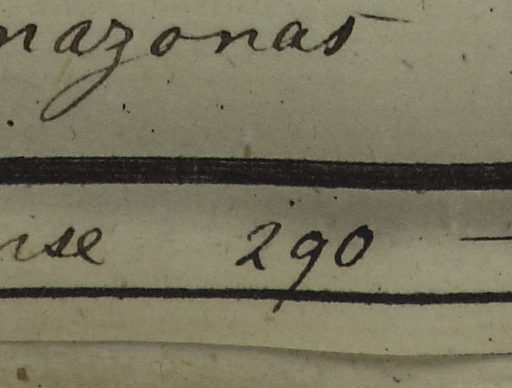 mazonas
use 290